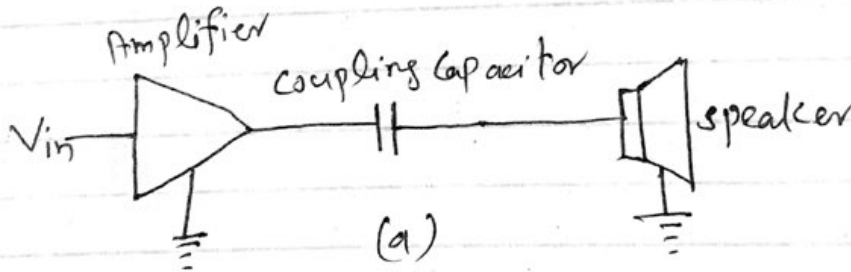 Amplifier
Coupling Capacitor
Vin
speaker
(a)